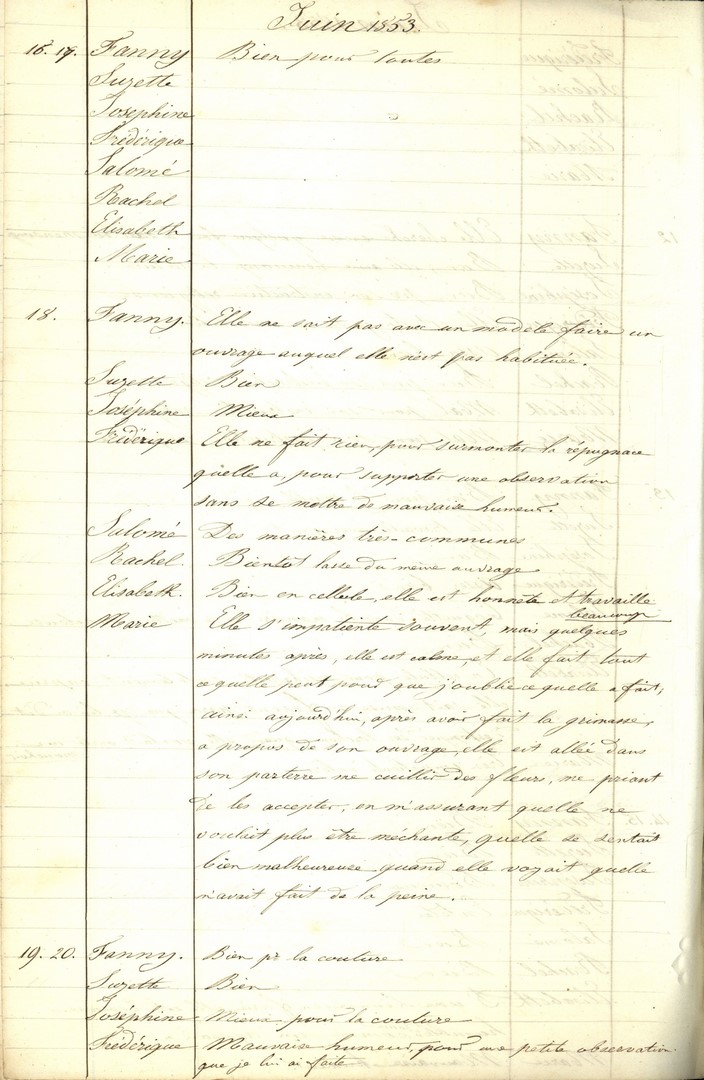 Juin 1853.
16. 17. Fanny Bien pour toutes
Suzette
Joséphine
Frédérique
Salomé
Rachel
Elisabeth
Marie
18. Fanny. Elle ne sait pas avec un modèle faire un
ouvrage auquel elle n'est pas habituée.
Suzette Bien
Joséphine Mieux
Frédérique Elle ne fait rien, pour surmonter la répugnace
qu'elle a, pour supporter une observation
sans se mettre de mauvaise humeur.
Salomé Des manières très-communes
Rachel. Bientôt lasse du même ouvrage
Elisabeth. Bien en cellule, elle est honnête et travaille
beaucoup
Marie Elle s'impatiente souvent, mais quelques
minutes après, elle est calme, et elle fait tout
ce quelle peut pour que j'oublie ce quelle a fait;
ainsi aujourd'hui, après avoir fait la grimasse,
a propos de son ouvrage, elle est allée dans
son parterre me cuillir des fleurs, me priant
de les accepter, en m'assurant quelle ne
voulait plus être méchante, quelle se sentait
bien malheureuse quand elle voyait quelle
m'avait fait de la peine.
19. 20. Fanny. Bien pr la couture
Suzette Bien
Joséphine Mieux pour la couture
Frédérique Mauvaise humeur, pour une petite observation
que je lui ai faite